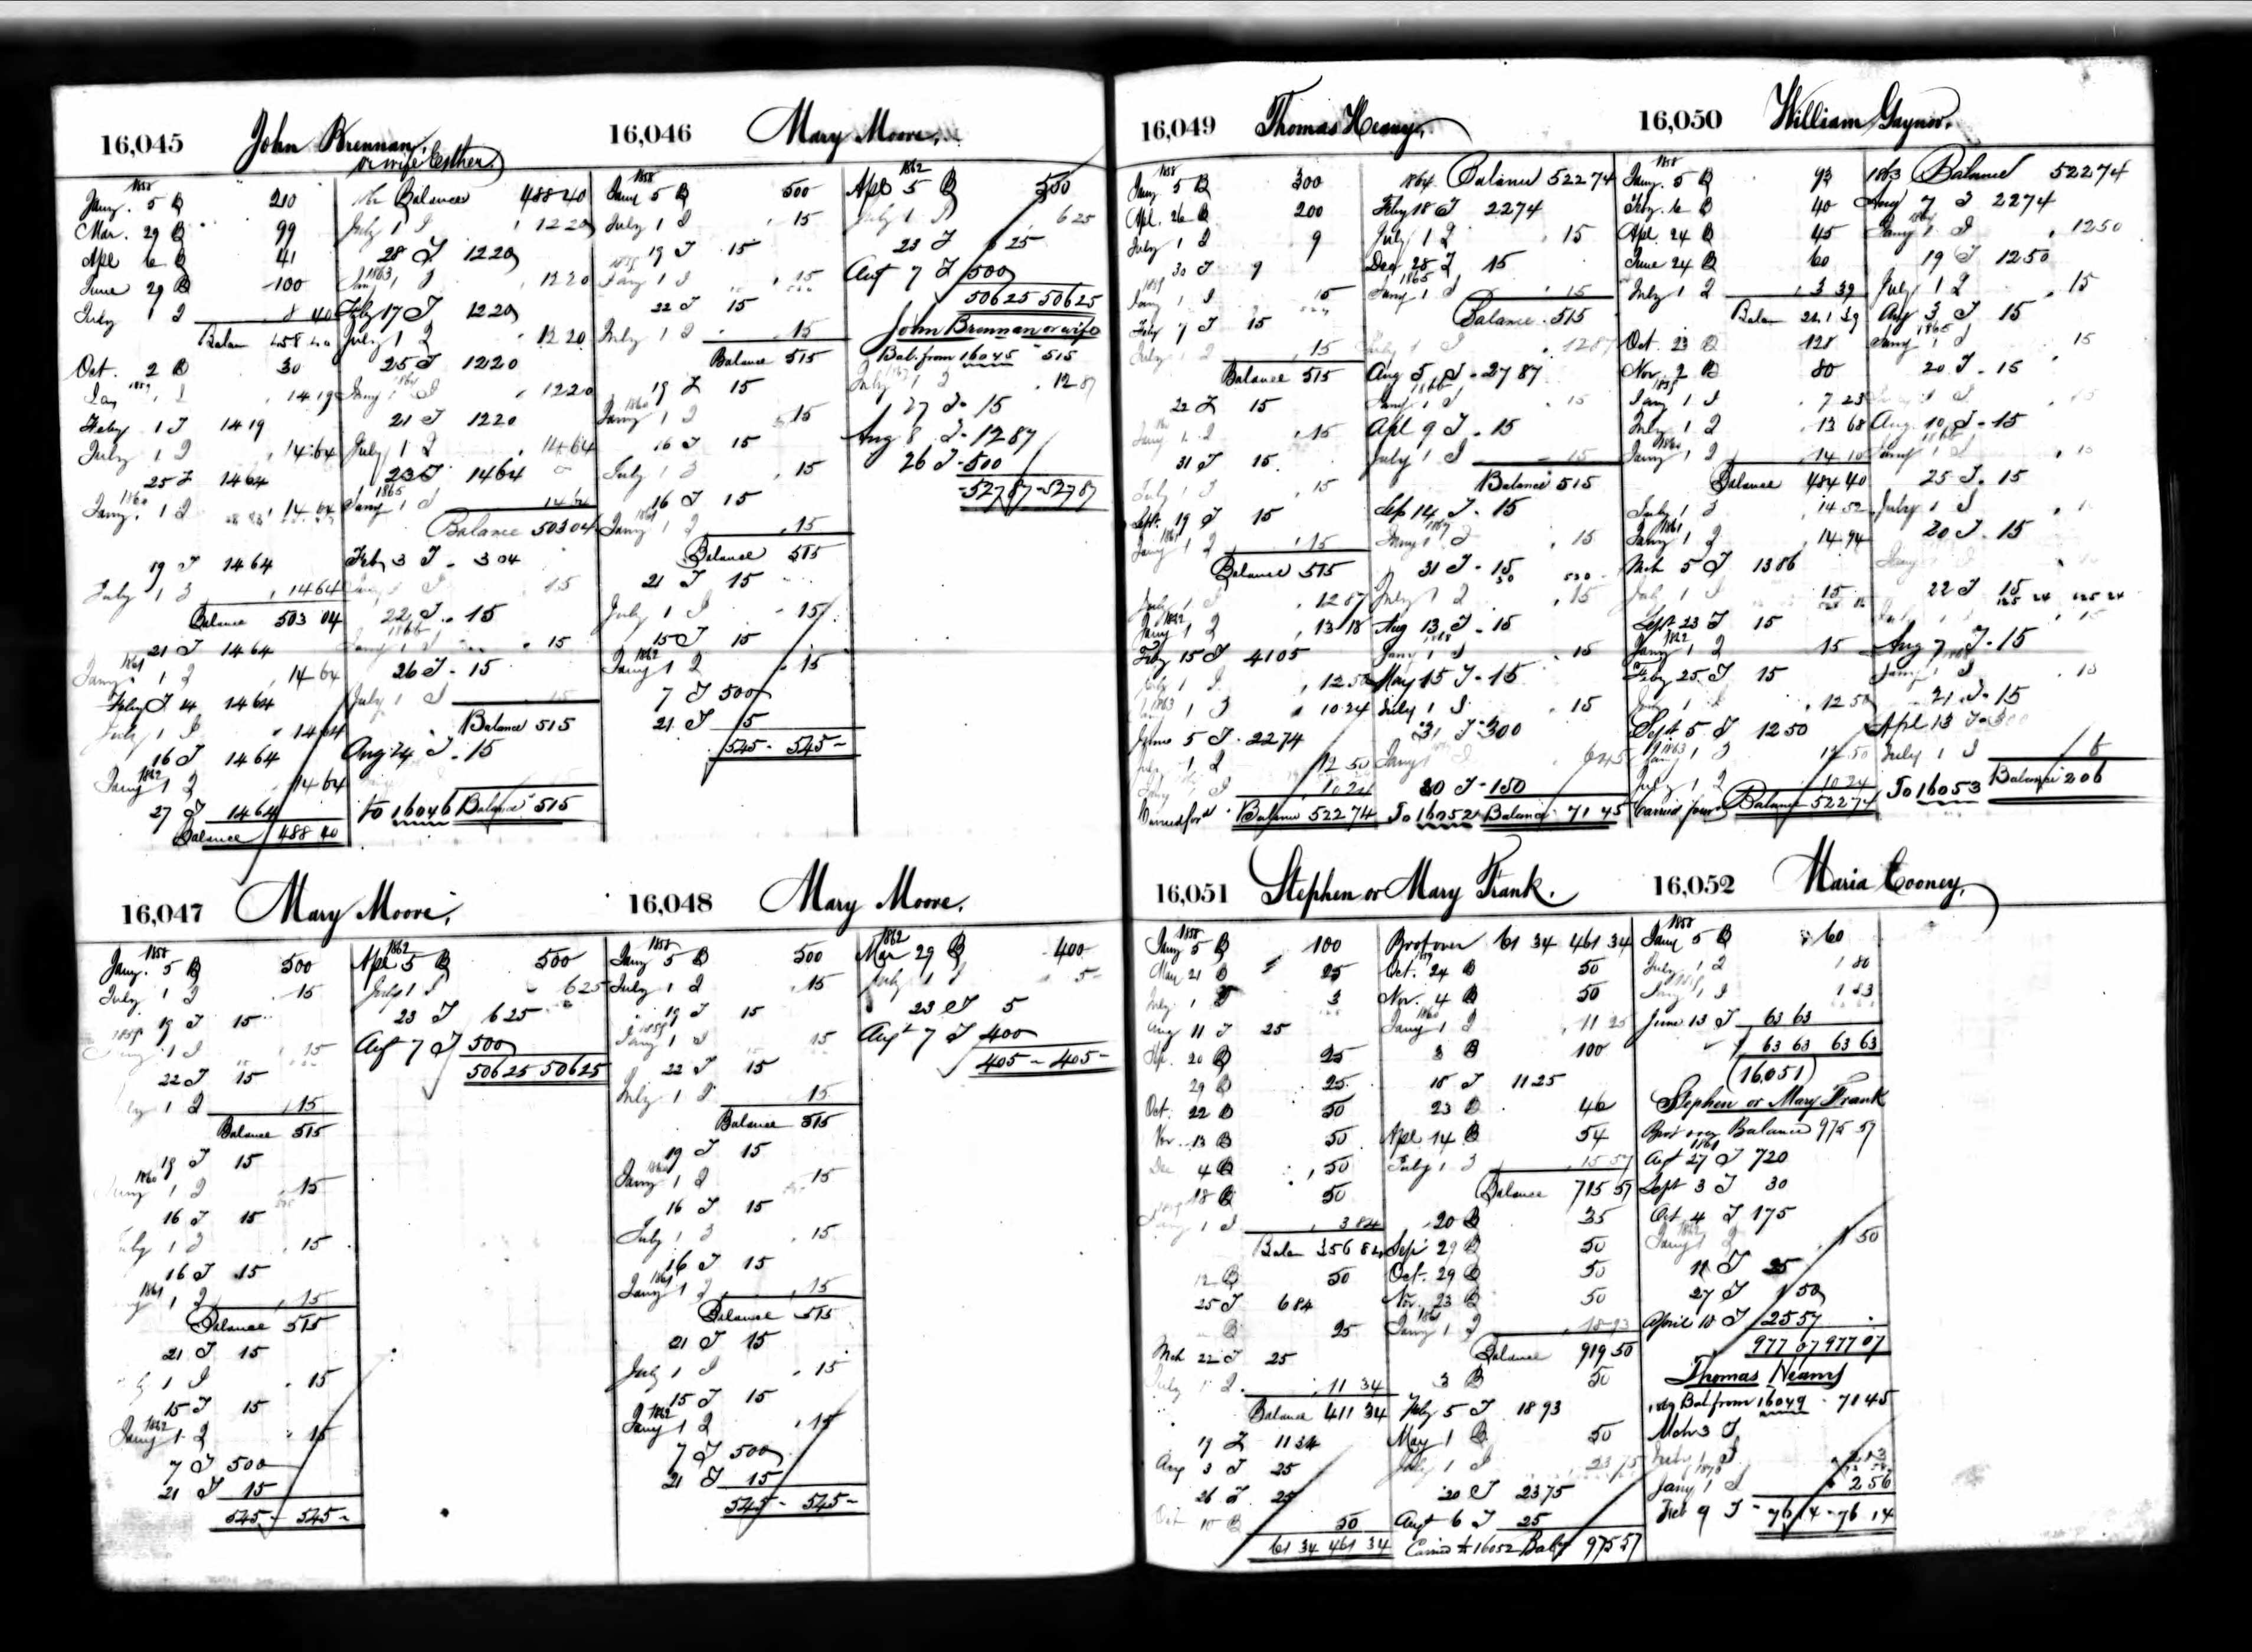 16,045 John Brennan
or wife Esther
1858
Jany. 5 B 210
Mar. 29 B 99
Apl 6 B 41
June 29 B 100
July 1 I 8 40
Balan 458 40
Oct. 2 B 30
1859
Jany 1 I 14 19
Feby 1 T 14 19
July 1 I 14 64
25 T 14 64
1860
Jany. 1 I 14 64
19 T 14 64
July 1 I 14 64
Balance 503 04
21 T 14 64
1861
Jany 1 I 14 64
Feby T 14 14 64
July 1 I 14 64
16 T 14 64
1862
Jany 1 I 14 64
27 T 14 64
Balance 488 40
Balance 488 40
July 1 I 12 20
28 T 12 20
1863
Jany 1 I 12 20
Feby 17 T 12 20
July 1 I 12 20
25 T 12 20
1864
Jany 1 I 12 20
21 T 12 20
July 1 I 14 64
23 T 14 64
1865
Jany 1 I 14 64
Balance 503 04
Feb 3 T 3 04
15
22 T 15
1866
Jany 1 I 15
26 T 15
July 1 I 15
Balance 515
Aug 24 T 15
To 16046 Balance 515
16,046 Mary Moore.
1858
Jany 5 B 500
July 1 I 15
19 T 15
1859
Jany 1 I 15
22 T 15
July 1 I 15
Balance 515
19 T 15
1860
Jany 1 I 15
16 T 15
July 1 I 15
16 T 15
1861
Jany 1 I 15
Balance 515
21 T 15
July 1 I 15
15 T 15
1862
Jany 1 I 15
7 T 500
21 T 15
545 - 545 -
1862
Apl 5 B 500
July 1 I 6 25
23 T 6 25
Augt 7 T 500
506 25 506 25
John Brennan or wife
Bal. from 16045 515
July 1 I 12 87
27 T 15
Aug 8 T 12 87
26 T 500
527 87 - 527 87
16,047 Mary Moore.
1858
Jany. 5 B 500
July 1 I 15
19 T 15
1859
Jany 1 I 15
22 T 15
July 1 I 15
Balance 515
19 T 15
1860
Jany 1 I 15
16 T 15
July 1 I 15
16 T 15
1861
1 I 15
Balance 515
21 T 15
July 1 I 15
15 T 15
1862
Jany 1 I 15
7 T 500
21 T 15
545 - 545 -
1862
Apl 5 B 500
July 1 I 6 25
23 T 6 25
Augt 7 T 500
506 25 506 25
16,048 Mary Moore.
1858
Jany 5 B 500
July 1 I 15
19 T 15
1859
Jany 1 I 15
22 T 15
July 1 I 15
Balance 515
19 T 15
1860
Jany 1 I 15
16 T 15
July 1 I 15
16 T 15
1861
Jany 1 I 15
Balance 515
21 T 15
July 1 I 15
15 T 15
1862
Jany 1 I 15
7 T 500
21 T 15
545 - 545 -
1862
Mar 29 B 400
July 1 I 5
23 T 5
Augt 7 T 400
405 - 405 -
16,049 Thomas Heany.
1858
Jany 5 B 300
Apl. 26 B 200
July 1 I 9
30 T 9
1859
Jany 1 I 15
Feby 7 T 15
July 1 I 15
Balance 515
22 T 15
Jany 1 I 15
31 T 15
July 1 I 15
Sept. 19 T 15
1861
Jany 1 I 15
Balance 515
July 1 I 12 87
1862
Jany 1 I 13 18
Feby 15 T 41 05
July 1 I 12 50
1863
Jany 1 I 10 24
June 5 T 22 74
July 1 I 12 50
Jany 1 I 10 24
Carried ford Balance 522 74
1864 Balance 522 74
Feby 18 T 22 74
July 1 I 15
Dec 28 T 15
1865
Jany 1 I 15
Balance 515
July 1 I 12 87
Aug 5 T 27 87
1866
Jany 1 I 15
Apl 9 T 15
July 1 I 15
Balance 515
Sep 14 T 15
1867
Jany 1 I 15
31 T 15
July 1 I 15
Aug 13 T 15
1868
Jany 1 I 15
May 15 T 15
July 1 I 15
31 T 300
Jany 1 I 6 45
30 T 150
To 16052 Balance 71 45
16,050 William Gaynor.
1858
Jany. 5 B 93
Feby. 6 B 40
Apl. 24 B 45
June 24 B 60
July 1 I 3 39
Balan 241 39
Oct. 23 B 128
Nov. 2 B 80
1859
Jany 1 I 7 23
July 1 I 13 68
1860
Jany 1 I 14 10
Balance 484 40
July 1 I 14 52
1861
Jany 1 I 14 94
Mch 5 T 13 86
July 1 I 15
Sept 23 T 15
1862
Jany 1 I 15
Feby 25 T 15
July 1 I 12 50
Sept 5 T 12 50
1863
Jany 1 I 12 50
July 1 I 10 24
Carried ford Balance 522 74
1863 Balance 522 74
Aug 7 T 22 74
1864
Jany 1 I 12 50
19 T 12 50
July 1 I 15
Aug 3 T 15
1865
Jany 1 I 15
20 T 15
July 1 I 15
Aug. 10 T 15
1866
Jany 1 I 15
25 T 15
July 1 I
20 T 15
22 T 15
July 1 I 15
Aug 7 T 15
1868
Jany 1 I 15
21 T 15
Apl 13 T 300
July 1 I 6
To 16053 Balance 206
16,051 Stephen or Mary Frank.
1858
Jany 5 B 100
May 21 B 25
July 1 I 3
Aug 11 T 25
Sep. 20 B 25
29 B 25
Oct. 22 B 50
Nov. 13 B 50
Dec 4 B 50
18 B 50
1859
Jany 1 I 3 84
Balan 356 84
12 B 50
25 T 6 84
B 25
Mch 22 T 25
July 1 I 11 34
Balance 411 34
19 T 11 34
Aug 3 T 25
26 T 25
Oct 10 B 50
61 34 461 34
Brot over 61 34 461 34
1859
Oct. 24 B 50
Nov. 4 B 50
1860
Jany 1 I 11 25
3 B 100
15 T 11 25
23 B 46
Apl 14 B 54
July 1 I 15 57
Balance 715 57
20 B 35
Sep 29 B 50
Oct. 29 B 50
Nov. 23 B 50
1861
Jany 1 I 18 93
Balance 919 50
3 B 50
Feby 5 T 18 93
May 1 B 50
July 1 I 23 75
20 T 23 75
Augt 6 T 25
Carried to 16052 Bale 975 57
16,052 Maria Cooney.
1858
Jany 5 B 60
July 1 I 1 80
1859
Jany 1 I 1 83
June 13 T 63 63
63 63 63 63
(16051)
Stephen or Mary Frank
Brot over Balance 975 57
1861
Augt 27 T 720
Sept 3 T 30
Oct 4 T 175
1862
Jany 1 I 1 50
11 T 25
27 T 1 50
April 10 T 25 57
977 07 977 07
Thomas Heany
1869 Bal. from 16049 71 45
Mch 3 T
July 1 I 2 13
1870
Jany 1 I 2 56
Feb 9 T 76 14 - 76 14